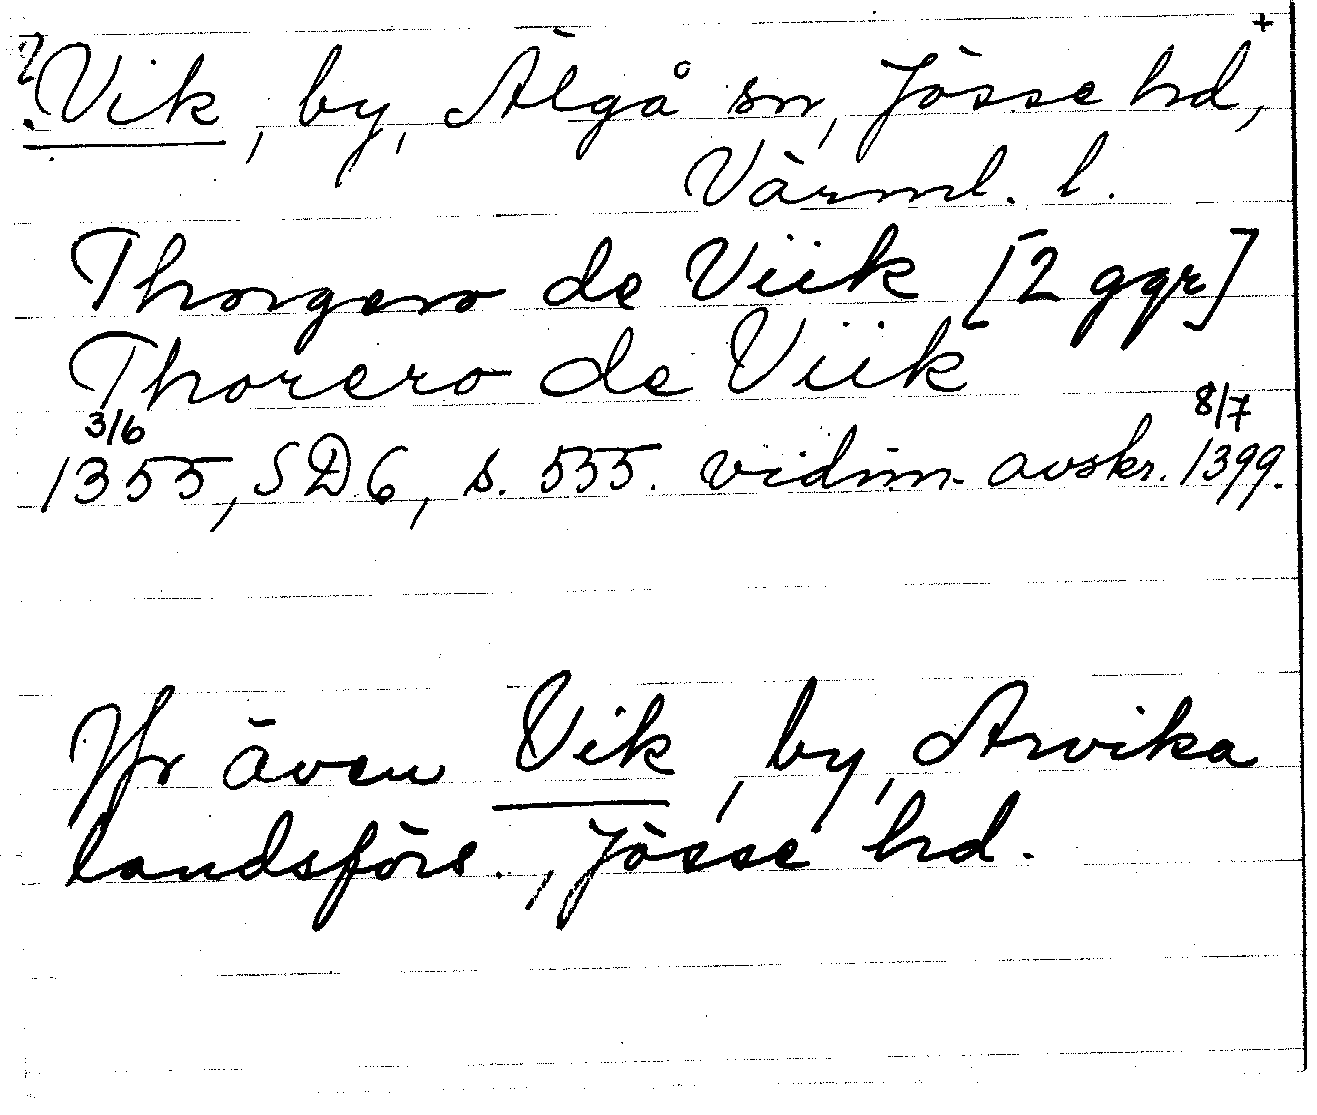 +
? Vik, by, Älgå sn, Jösse hd,
Värml. l.
Thorgero de Viik [2 ggr]
Thorero de Viik
3/6 8/7
1355, SD 6, s. 555. vidim. avskr. 1399.
Jfr även Vik, by, Arvika
landsförs., Jösse hd.